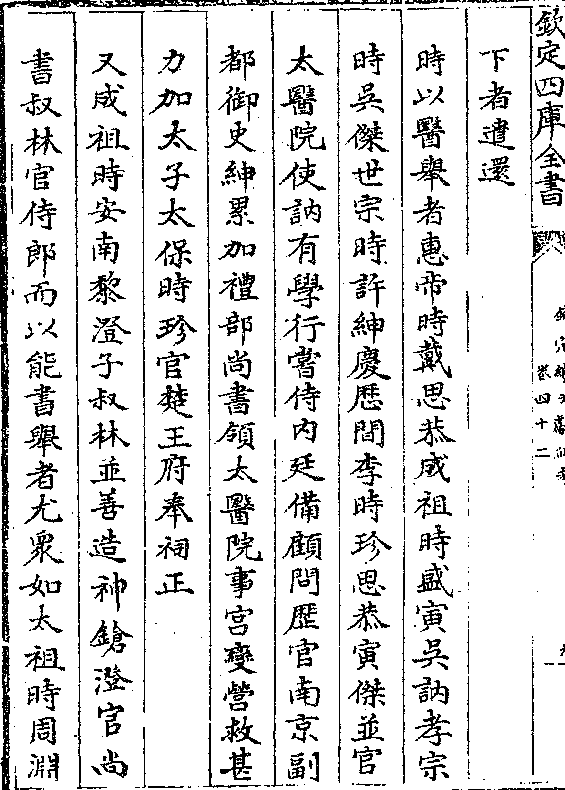 欽定四庫全書
卷四十二
下者遣還
時以醫舉者惠帝時戴思恭成祖時盛寅吳訥孝宗
時吳傑世宗時許紳慶歷間李時珍思恭寅傑並官
太醫院使訥有學行嘗侍内廷備顧問歷官南京副
都御史紳累加禮部尚書領太醫院事宫變營救甚
力加太子太保時珍官楚王府奉祠正
又成祖時安南黎澄子叔林並善造神鎗澄官尚
書叔林官侍郎而以能書舉者尤衆如太祖時周淵